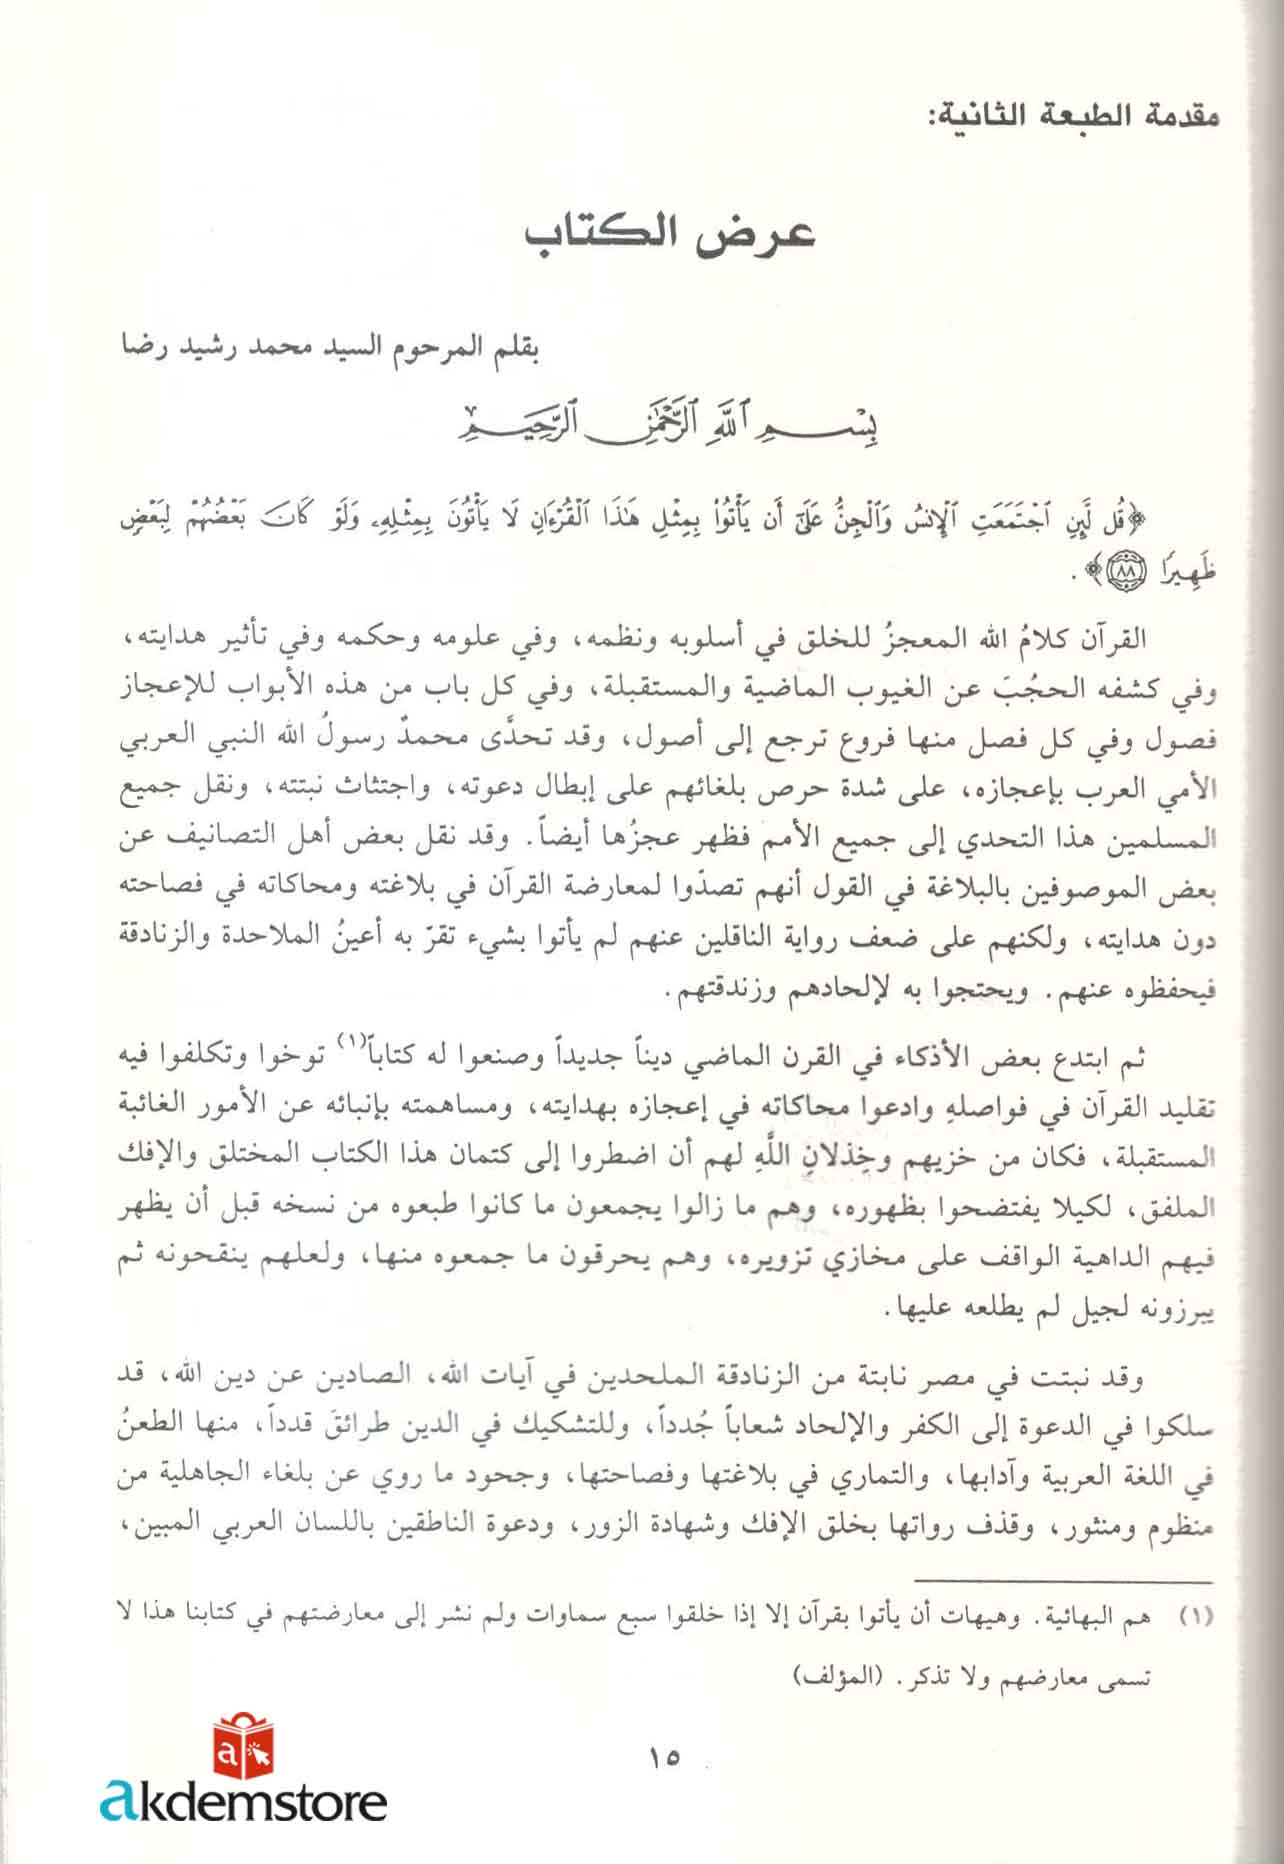 مقدمة الطبعة الثانية:
عرض الكتاب
بقلم المرحوم السيد محمد رشيد رضا
بِسْمِ اللَّهِ الرَّحْمَٰنِ الرَّحِيمِ
﴿قُل لَّئِنِ اجْتَمَعَتِ الْإِنسُ وَالْجِنُّ عَلَىٰ أَن يَأْتُوا بِمِثْلِ هَٰذَا الْقُرْءَانِ لَا يَأْتُونَ بِمِثْلِهِ وَلَوْ كَانَ بَعْضُهُمْ لِبَعْضٍ
ظَهِيرًا ٨٨﴾.
القرآن كلامُ الله المعجزُ للخلق في أسلوبه ونظمه، وفي علومه وحكمه وفي تأثير هدايته،
وفي كشفه الحجُبَ عن الغيوب الماضية والمستقبلة، وفي كل باب من هذه الأبواب للإعجاز
فصول وفي كل فصل منها فروع ترجع إلى أصول، وقد تحدَّى محمدٌ رسولُ الله النبي العربي
الأمي العرب بإعجازه، على شدة حرص بلغائهم على إبطال دعوته، واجتثاث نبتته، ونقل جميع
المسلمين هذا التحدي إلى جميع الأمم فظهر عجزُها أيضاً. وقد نقل بعض أهل التصانيف عن
بعض الموصوفين بالبلاغة في القول أنهم تصدّوا لمعارضة القرآن في بلاغته ومحاكاته في فصاحته
دون هدايته، ولكنهم على ضعف رواية الناقلين عنهم لم يأتوا بشيء تقرّ به أعينُ الملاحدة والزنادقة
فيحفظوه عنهم. ويحتجوا به لإلحادهم وزندقتهم.
ثم ابتدع بعض الأذكاء في القرن الماضي ديناً جديداً وصنعوا له كتاباً(١) توخوا وتكلفوا فيه
تقليد القرآن في فواصلهِ وادعوا محاكاته في إعجازه بهدايته، ومساهمته بإنبائه عن الأمور الغائبة
المستقبلة، فكان من خزيهم وخِذلانِ اللَّهِ لهم أن اضطروا إلى كتمان هذا الكتاب المختلق والإفك
الملفق، لكيلا يفتضحوا بظهوره، وهم ما زالوا يجمعون ما كانوا طبعوه من نسخه قبل أن يظهر
فيهم الداهية الواقف على مخازي تزويره، وهم يحرقون ما جمعوه منها، ولعلهم ينقحونه ثم
يبرزونه لجيل لم يطلعه عليها.
وقد نبتت في مصر نابتة من الزنادقة الملحدين في آيات الله، الصادين عن دين الله، قد
سلكوا في الدعوة إلى الكفر والإلحاد شعاباً جُدداً، وللتشكيك في الدين طرائقَ قدداً، منها الطعنُ
في اللغة العربية وآدابها، والتماري في بلاغتها وفصاحتها، وجحود ما روي عن بلغاء الجاهلية من
منظوم ومنثور، وقذف رواتها بخلق الإفك وشهادة الزور، ودعوة الناطقين باللسان العربي المبين،
(١) هم البهائية. وهيهات أن يأتوا بقرآن إلا إذا خلقوا سبع سماوات ولم نشر إلى معارضتهم في كتابنا هذا لا
تسمى معارضهم ولا تذكر. (المؤلف)
١٥
a
akdemstore